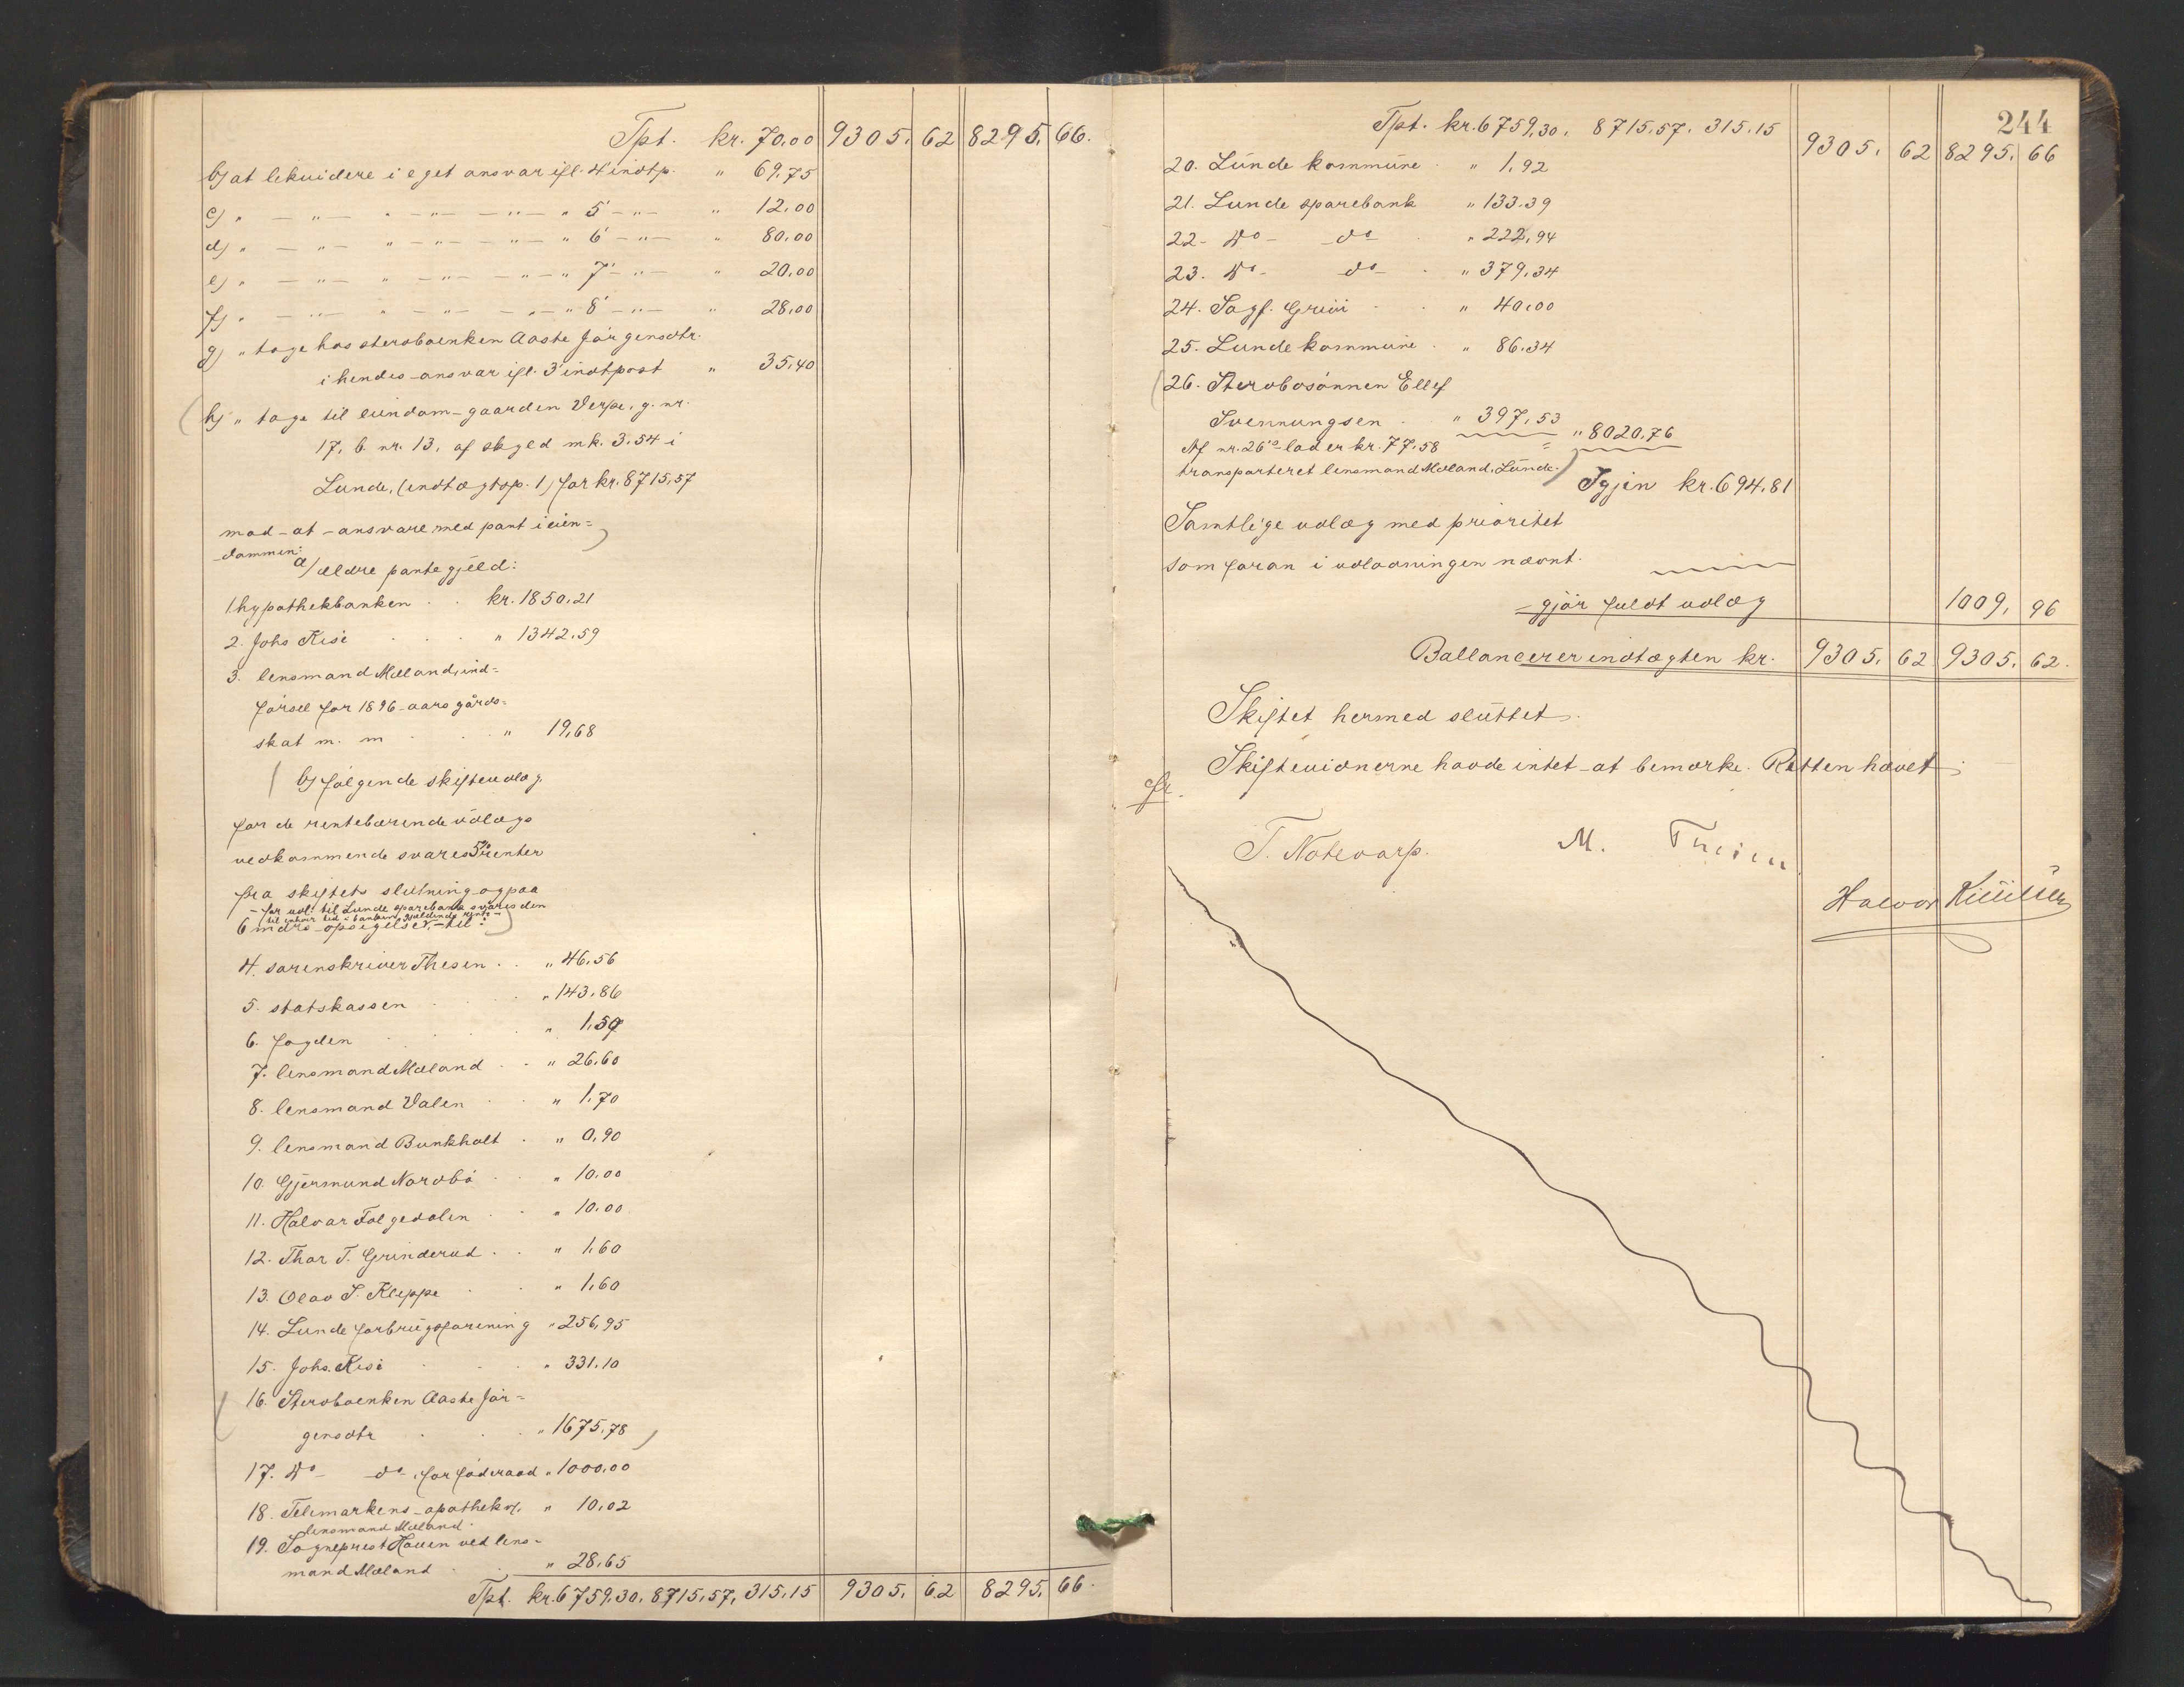 Tpt. kr. 70,00 9305, 62 8295, 66.
b) at likvidere i eget ansvar ifl. 4' indtp. " 69,75
c) " — " — " — " — — " — " 5' — " — " 12,00
d) " — " — " — " — — " — " 6' — " — " 80,00
e) " — " — " — " — — " — " 7' — " — " 20,00
f) " — " — " — " — — " — " 8' — " — " 28,00
g) " tage hos sterboenken Aaste Jørgensdtr.
i hendes ansvar ifl. 3' indtpost " 35,40
h) " tage til eiendom - gaarden Verpe, g. nr.
17, b. nr. 13, af skyld mk. 3.54 i
Lunde, (indtægtsp. 1) for kr. 8715,57
mod - at - ansvare med pant i eien=
dommen:
a) ældre pantegjeld:
1. hypothekbanken . . kr. 1850,21
2. Johs Kisi . . . " 1342,59
3. lensmand Mæland, ind=
førsel for 1896 - aars gårds=
skat m. m . . . " 19,68
b) følgende skifteudlæg,
for de rentebærende udlægs
vedkommende svares 5% renter
fra skiftets slutning og paa
- for udl. til Lunde sparebank svares den
til enhver tid i banken gjældende rente -
6 mdrs opsigelse, - til:
4. sorenskriver Thesen . . " 46,56
5. statskassen . . . " 143,86
6. fogden . . . " 1,50
7. lensmand Mæland . . " 26,60
8. lensmand Valen . . " 1,70
9. lensmand Bunkholt . " 0,90
10. Gjermund Nordbø . . " 10,00
11. Halvor Folgedalen . . " 10,00
12. Thor T. Grinderud . . " 1,60
13. Olav S. Kleppe . . " 1,60
14. Lunde forbrugsforening " 256,95
15. Johs. Kisi . . . " 331,10
16. Sterboenken Aaste Jør=
gensdtr . . . " 1675,78
17. Do - do -, for føderaad " 1000,00
18. Telemarkens - apothek v/. " 10,02
lensmand Mæland.
19. Sogneprest Hauen ved lens=
mand Mæland . . " 28,65
Tpt. kr. 6759,30, 8715,57, 315,15 9305, 62 8295, 66.
244
Tpt. kr. 6759,30. 8715,57. 315,15 9305, 62 8295, 66
20. Lunde kommune . " 1,92
21. Lunde sparebank " 133,39
22. Do - do - . " 222,94
23. Do - do - . " 379,34
24. Sagf. Grivi . . " 40,00
25. Lunde kommune . " 86,34
26. Sterbosønnen Ellef
Svennungsen . . " 397,53 " 8020,76
Af nr. 26's lod er kr. 77,58
transporteret lensmand Mæland, Lunde.
Igjen kr. 694,81
Samtlige udlæg med prioritet
som foran i udlodningen nævnt.
- gjør fuldt udlæg 1009, 96
Ballancerer indtægten kr. 9305, 62 9305, 62.
Skiftet hermed sluttet.
Skiftevidnerne havde intet at bemærke. Retten hævet.
T. Notevarp. M. Theien
Halvor